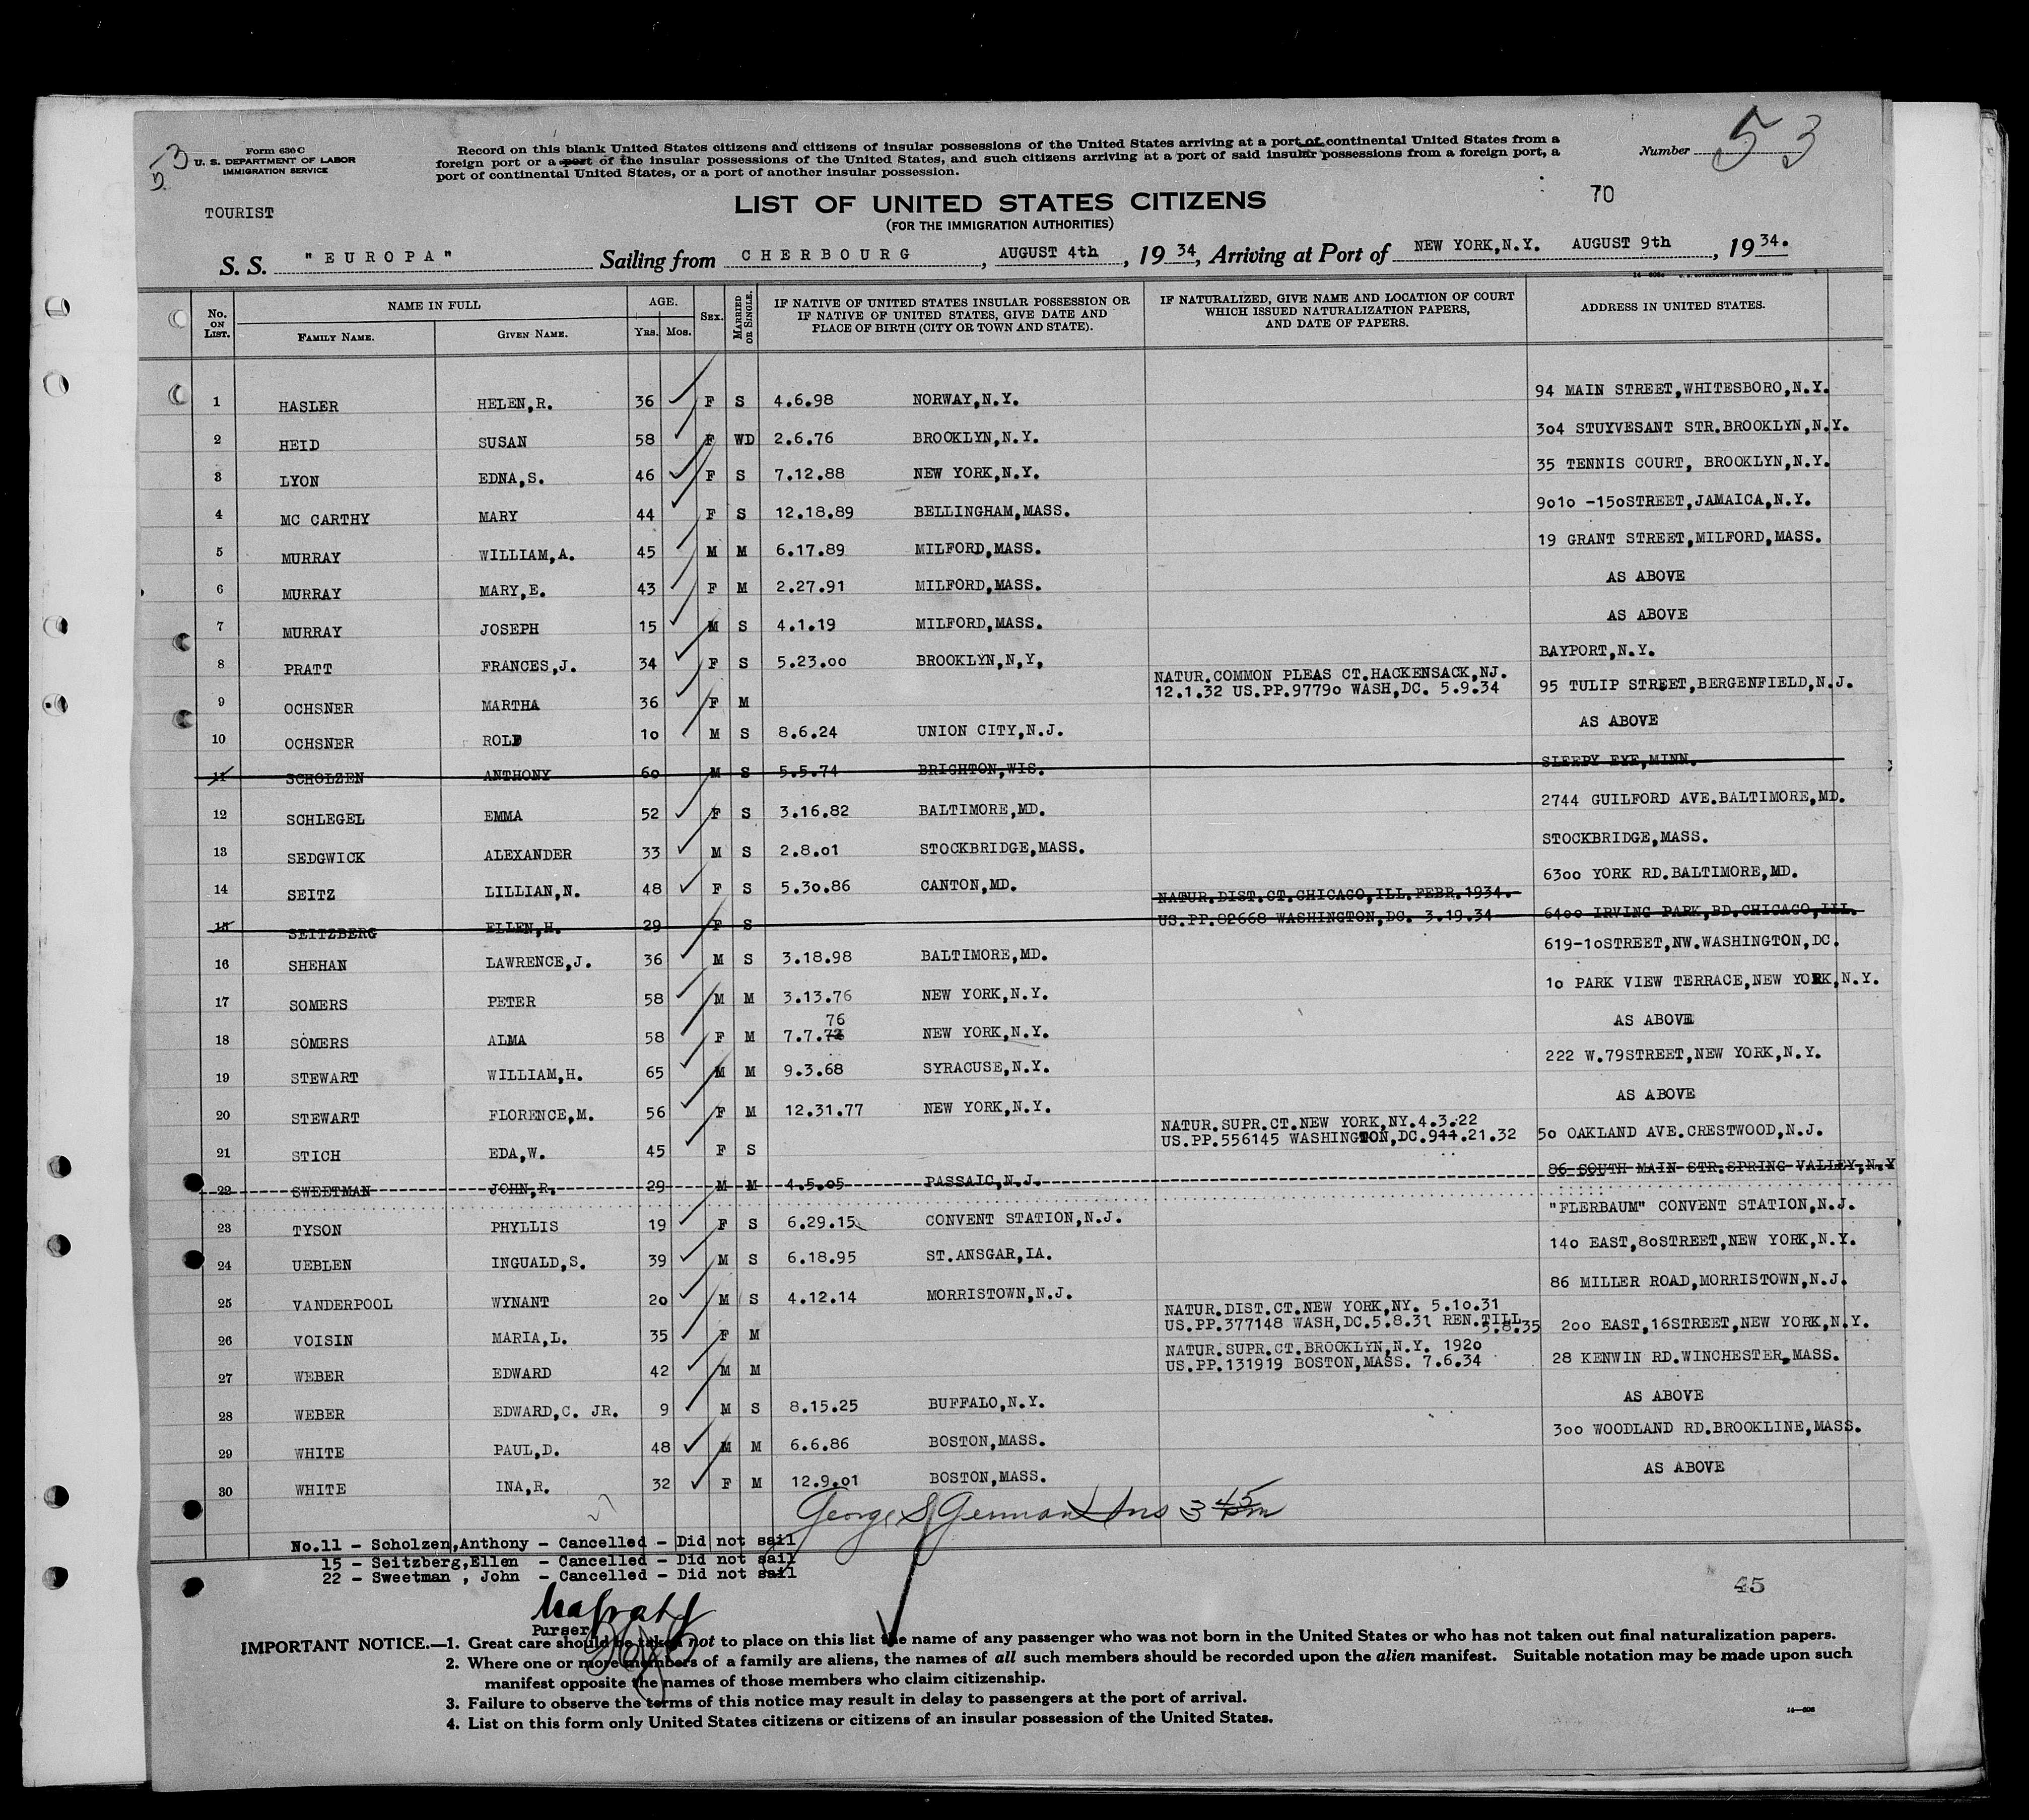 53
Form 630 C
U. S. DEPARTMENT OF LABOR
IMMIGRATION SERVICE
Record on this blank United States citizens and citizens of insular possessions of the United States arriving at a port of continental United States from a
foreign port or a port of the insular possessions of the United States, and such citizens arriving at a port of said insular possessions from a foreign port, a
port of continental United States, or a port of another insular possession.
Number 53
TOURIST
LIST OF UNITED STATES CITIZENS
70
(FOR THE IMMIGRATION AUTHORITIES)
S. S. "EUROPA" Sailing from CHERBOURG, AUGUST 4th, 1934, Arriving at Port of NEW YORK,N.Y. AUGUST 9th, 1934.
No. ON LIST. NAME IN FULL FAMILY NAME. GIVEN NAME. AGE. YRS. MOS. SEX. MARRIED OR SINGLE. IF NATIVE OF UNITED STATES INSULAR POSSESSION OR IF NATIVE OF UNITED STATES, GIVE DATE AND PLACE OF BIRTH (CITY OR TOWN AND STATE). IF NATURALIZED, GIVE NAME AND LOCATION OF COURT WHICH ISSUED NATURALIZATION PAPERS, AND DATE OF PAPERS. ADDRESS IN UNITED STATES.
1 HASLER HELEN,R. 36 F S 4.6.98 NORWAY,N.Y. 94 MAIN STREET,WHITESBORO,N.Y.
2 HEID SUSAN 58 F WD 2.6.76 BROOKLYN,N.Y. 304 STUYVESANT STR.BROOKLYN,N.Y.
3 LYON EDNA,S. 46 F S 7.12.88 NEW YORK,N.Y. 35 TENNIS COURT, BROOKLYN,N.Y.
4 MC CARTHY MARY 44 F S 12.18.89 BELLINGHAM,MASS. 9010 -150STREET,JAMAICA,N.Y.
5 MURRAY WILLIAM,A. 45 M M 6.17.89 MILFORD,MASS. 19 GRANT STREET,MILFORD,MASS.
6 MURRAY MARY,E. 43 F M 2.27.91 MILFORD,MASS. AS ABOVE
7 MURRAY JOSEPH 15 M S 4.1.19 MILFORD,MASS. AS ABOVE
8 PRATT FRANCES,J. 34 F S 5.23.00 BROOKLYN,N,Y, BAYPORT,N.Y.
NATUR.COMMON PLEAS CT.HACKENSACK,NJ.
9 OCHSNER MARTHA 36 F M 12.1.32 US.PP.97790 WASH,DC. 5.9.34 95 TULIP STREET,BERGENFIELD,N.J.
10 OCHSNER ROLF 10 M S 8.6.24 UNION CITY,N.J. AS ABOVE
11 SCHOLZEN ANTHONY 60 M S 5.5.74 BRIGHTON,WIS. SLEEPY EYE,MINN.
12 SCHLEGEL EMMA 52 F S 3.16.82 BALTIMORE,MD. 2744 GUILFORD AVE.BALTIMORE,MD.
13 SEDGWICK ALEXANDER 33 M S 2.8.01 STOCKBRIDGE,MASS. STOCKBRIDGE,MASS.
14 SEITZ LILLIAN,N. 48 F S 5.30.86 CANTON,MD. 6300 YORK RD.BALTIMORE,MD.
NATUR.DIST.CT.CHICAGO,ILL.FEBR.1934.
15 SEITZBERG ELLEN,H. 29 F S US.PP.82668 WASHINGTON,DC. 3.19.34 6400 IRVING PARK,BD.CHICAGO,ILL.
16 SHEHAN LAWRENCE,J. 36 M S 3.18.98 BALTIMORE,MD. 619-10STREET,NW.WASHINGTON,DC.
17 SOMERS PETER 58 M M 3.13.76 NEW YORK,N.Y. 10 PARK VIEW TERRACE,NEW YORK,N.Y.
76
18 SOMERS ALMA 58 F M 7.7.72 NEW YORK,N.Y. AS ABOVE
19 STEWART WILLIAM,H. 65 M M 9.3.68 SYRACUSE,N.Y. 222 W.79STREET,NEW YORK,N.Y.
20 STEWART FLORENCE,M. 56 F M 12.31.77 NEW YORK,N.Y. AS ABOVE
NATUR.SUPR.CT.NEW YORK,NY.4.3.22
21 STICH EDA,W. 45 F S US.PP.556145 WASHINGTON,DC.911.21.32 50 OAKLAND AVE.CRESTWOOD,N.J.
22 SWEETMAN JOHN,R. 29 M M 4.5.05 PASSAIC,N.J. 86 SOUTH MAIN STR.SPRING VALLEY,N.Y
23 TYSON PHYLLIS 19 F S 6.29.15 CONVENT STATION,N.J. "FLERBAUM" CONVENT STATION,N.J.
24 UEBLEN INGUALD,S. 39 M S 6.18.95 ST.ANSGAR,IA. 140 EAST,80STREET,NEW YORK,N.Y.
25 VANDERPOOL WYNANT 20 M S 4.12.14 MORRISTOWN,N.J. 86 MILLER ROAD,MORRISTOWN,N.J.
NATUR.DIST.CT.NEW YORK,NY. 5.10.31
26 VOISIN MARIA,L. 35 F M US.PP.377148 WASH,DC.5.8.31 REN.TILL 5.8.35 200 EAST,16STREET,NEW YORK,N.Y.
NATUR.SUPR.CT.BROOKLYN,N.Y. 1920
27 WEBER EDWARD 42 M M US.PP.131919 BOSTON,MASS. 7.6.34 28 KENWIN RD.WINCHESTER,MASS.
28 WEBER EDWARD,C. JR. 9 M S 8.15.25 BUFFALO,N.Y. AS ABOVE
29 WHITE PAUL,D. 48 M M 6.6.86 BOSTON,MASS. 300 WOODLAND RD.BROOKLINE,MASS.
30 WHITE INA,R. 32 F M 12.9.01 BOSTON,MASS. AS ABOVE
George S German Ins 3 45 pm
No.11 - Scholzen,Anthony - Cancelled - Did not sail
15 - Seitzberg,Ellen - Cancelled - Did not sail
22 - Sweetman , John - Cancelled - Did not sail
45
Purser
IMPORTANT NOTICE.—1. Great care should be taken not to place on this list the name of any passenger who was not born in the United States or who has not taken out final naturalization papers.
2. Where one or more members of a family are aliens, the names of all such members should be recorded upon the alien manifest. Suitable notation may be made upon such
manifest opposite the names of those members who claim citizenship.
3. Failure to observe the terms of this notice may result in delay to passengers at the port of arrival.
4. List on this form only United States citizens or citizens of an insular possession of the United States.